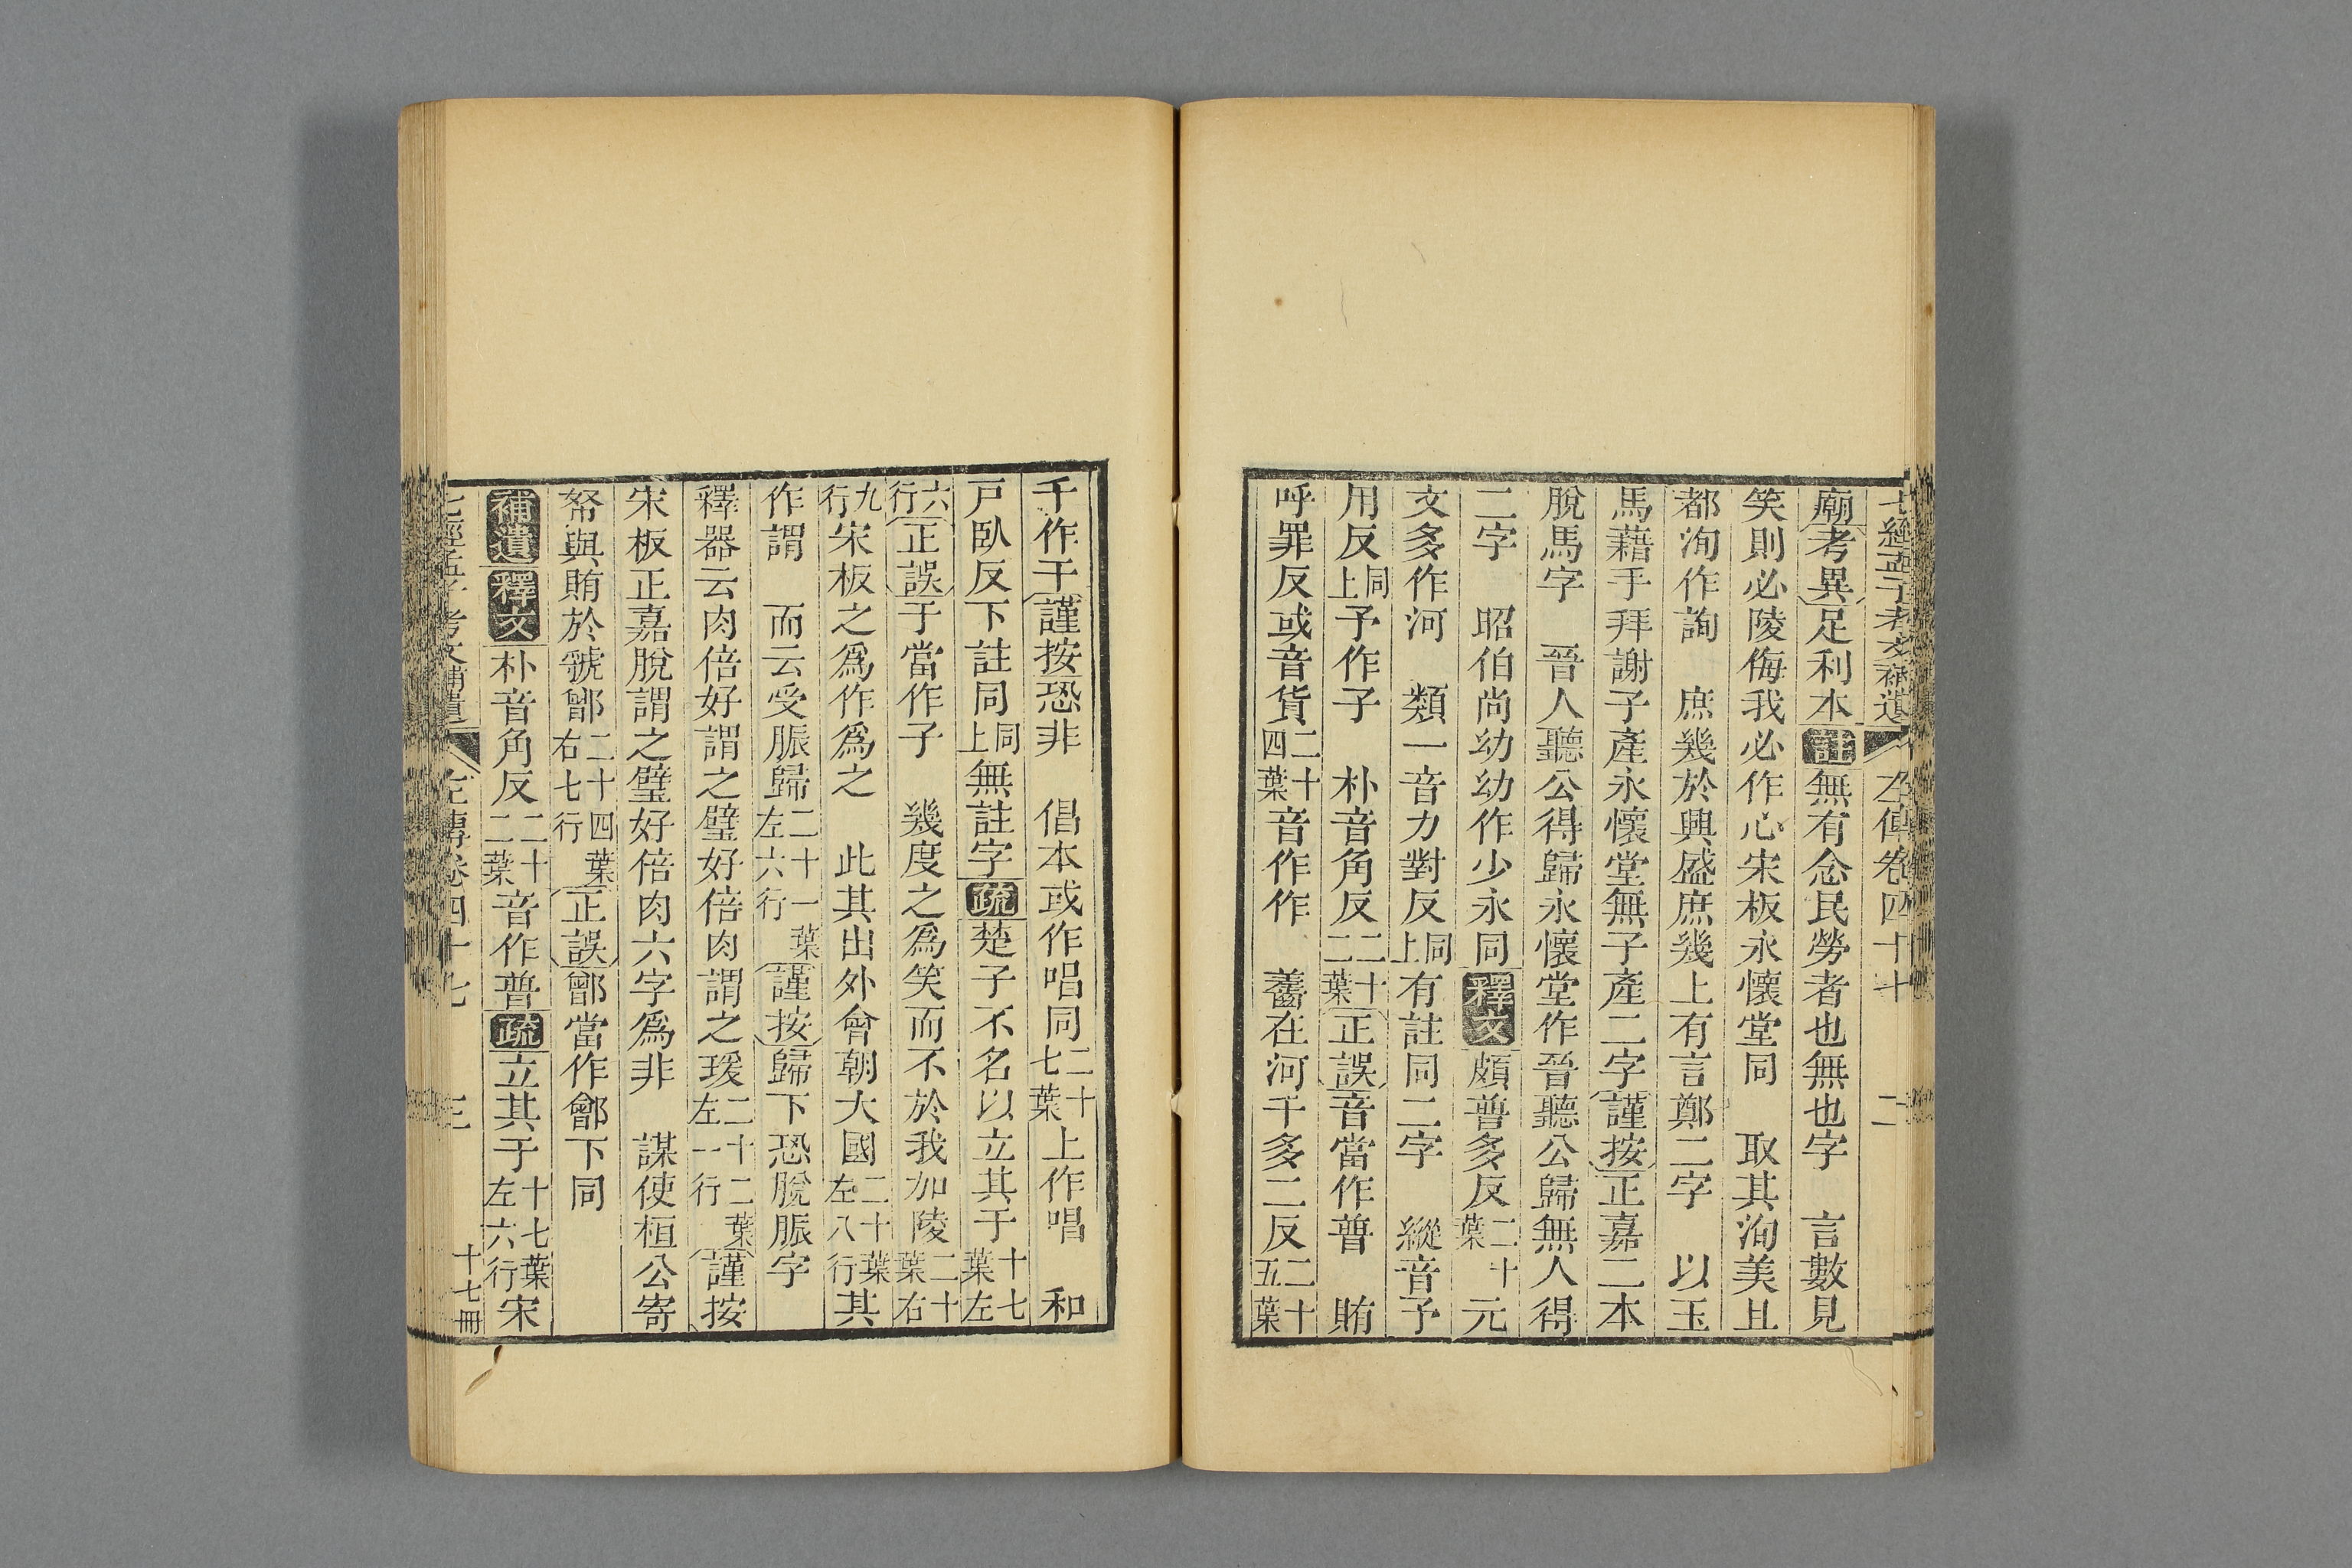 七經孟子考文補遺 左傳卷四十七 二
廟考異足利本註無有念民勞者也無也字 言數見
笑則必陵侮我必作心宋板永懷堂同 取其洵美且
都洵作詢 庶幾於興盛庶幾上有言鄭二字 以玉
馬藉手拜謝子產永懷堂無子產二字謹按正嘉二本
脫馬字 晉人聽公得歸永懷堂作晉聽公歸無人得
二字 昭伯尚幼幼作少永同釋文頗普多反二十葉元
文多作河 類一音力對反同上有註同二字 縱音予
用反同上予作子 朴音角反二十二葉正誤音當作普 賄
呼罪反或音貨二十四葉音作作 齹在河千多二反二十五葉
千作干謹按恐非 倡本或作唱同二十七葉上作唱 和
戸臥反下註同同上無註字疏楚子不名以立其于十七葉左
六行正誤于當作子 幾度之爲笑而不於我加陵二十葉右
九行宋板之爲作爲之 此其出外會朝大國二十葉左八行其
作謂 而云受脤歸二十一葉左六行謹按歸下恐脫脤字
釋器云肉倍好謂之璧好倍肉謂之瑗二十二葉左一行謹按
宋板正嘉脫謂之璧好倍肉六字爲非 謀使桓公寄
帑與賄於虢鄶二十四葉右七行正誤鄶當作鄶下同
補遺釋文朴音角反二十二葉音作普疏立其于十七葉左六行宋
七經孟子考文補遺 左傳卷四十七 三 十七冊